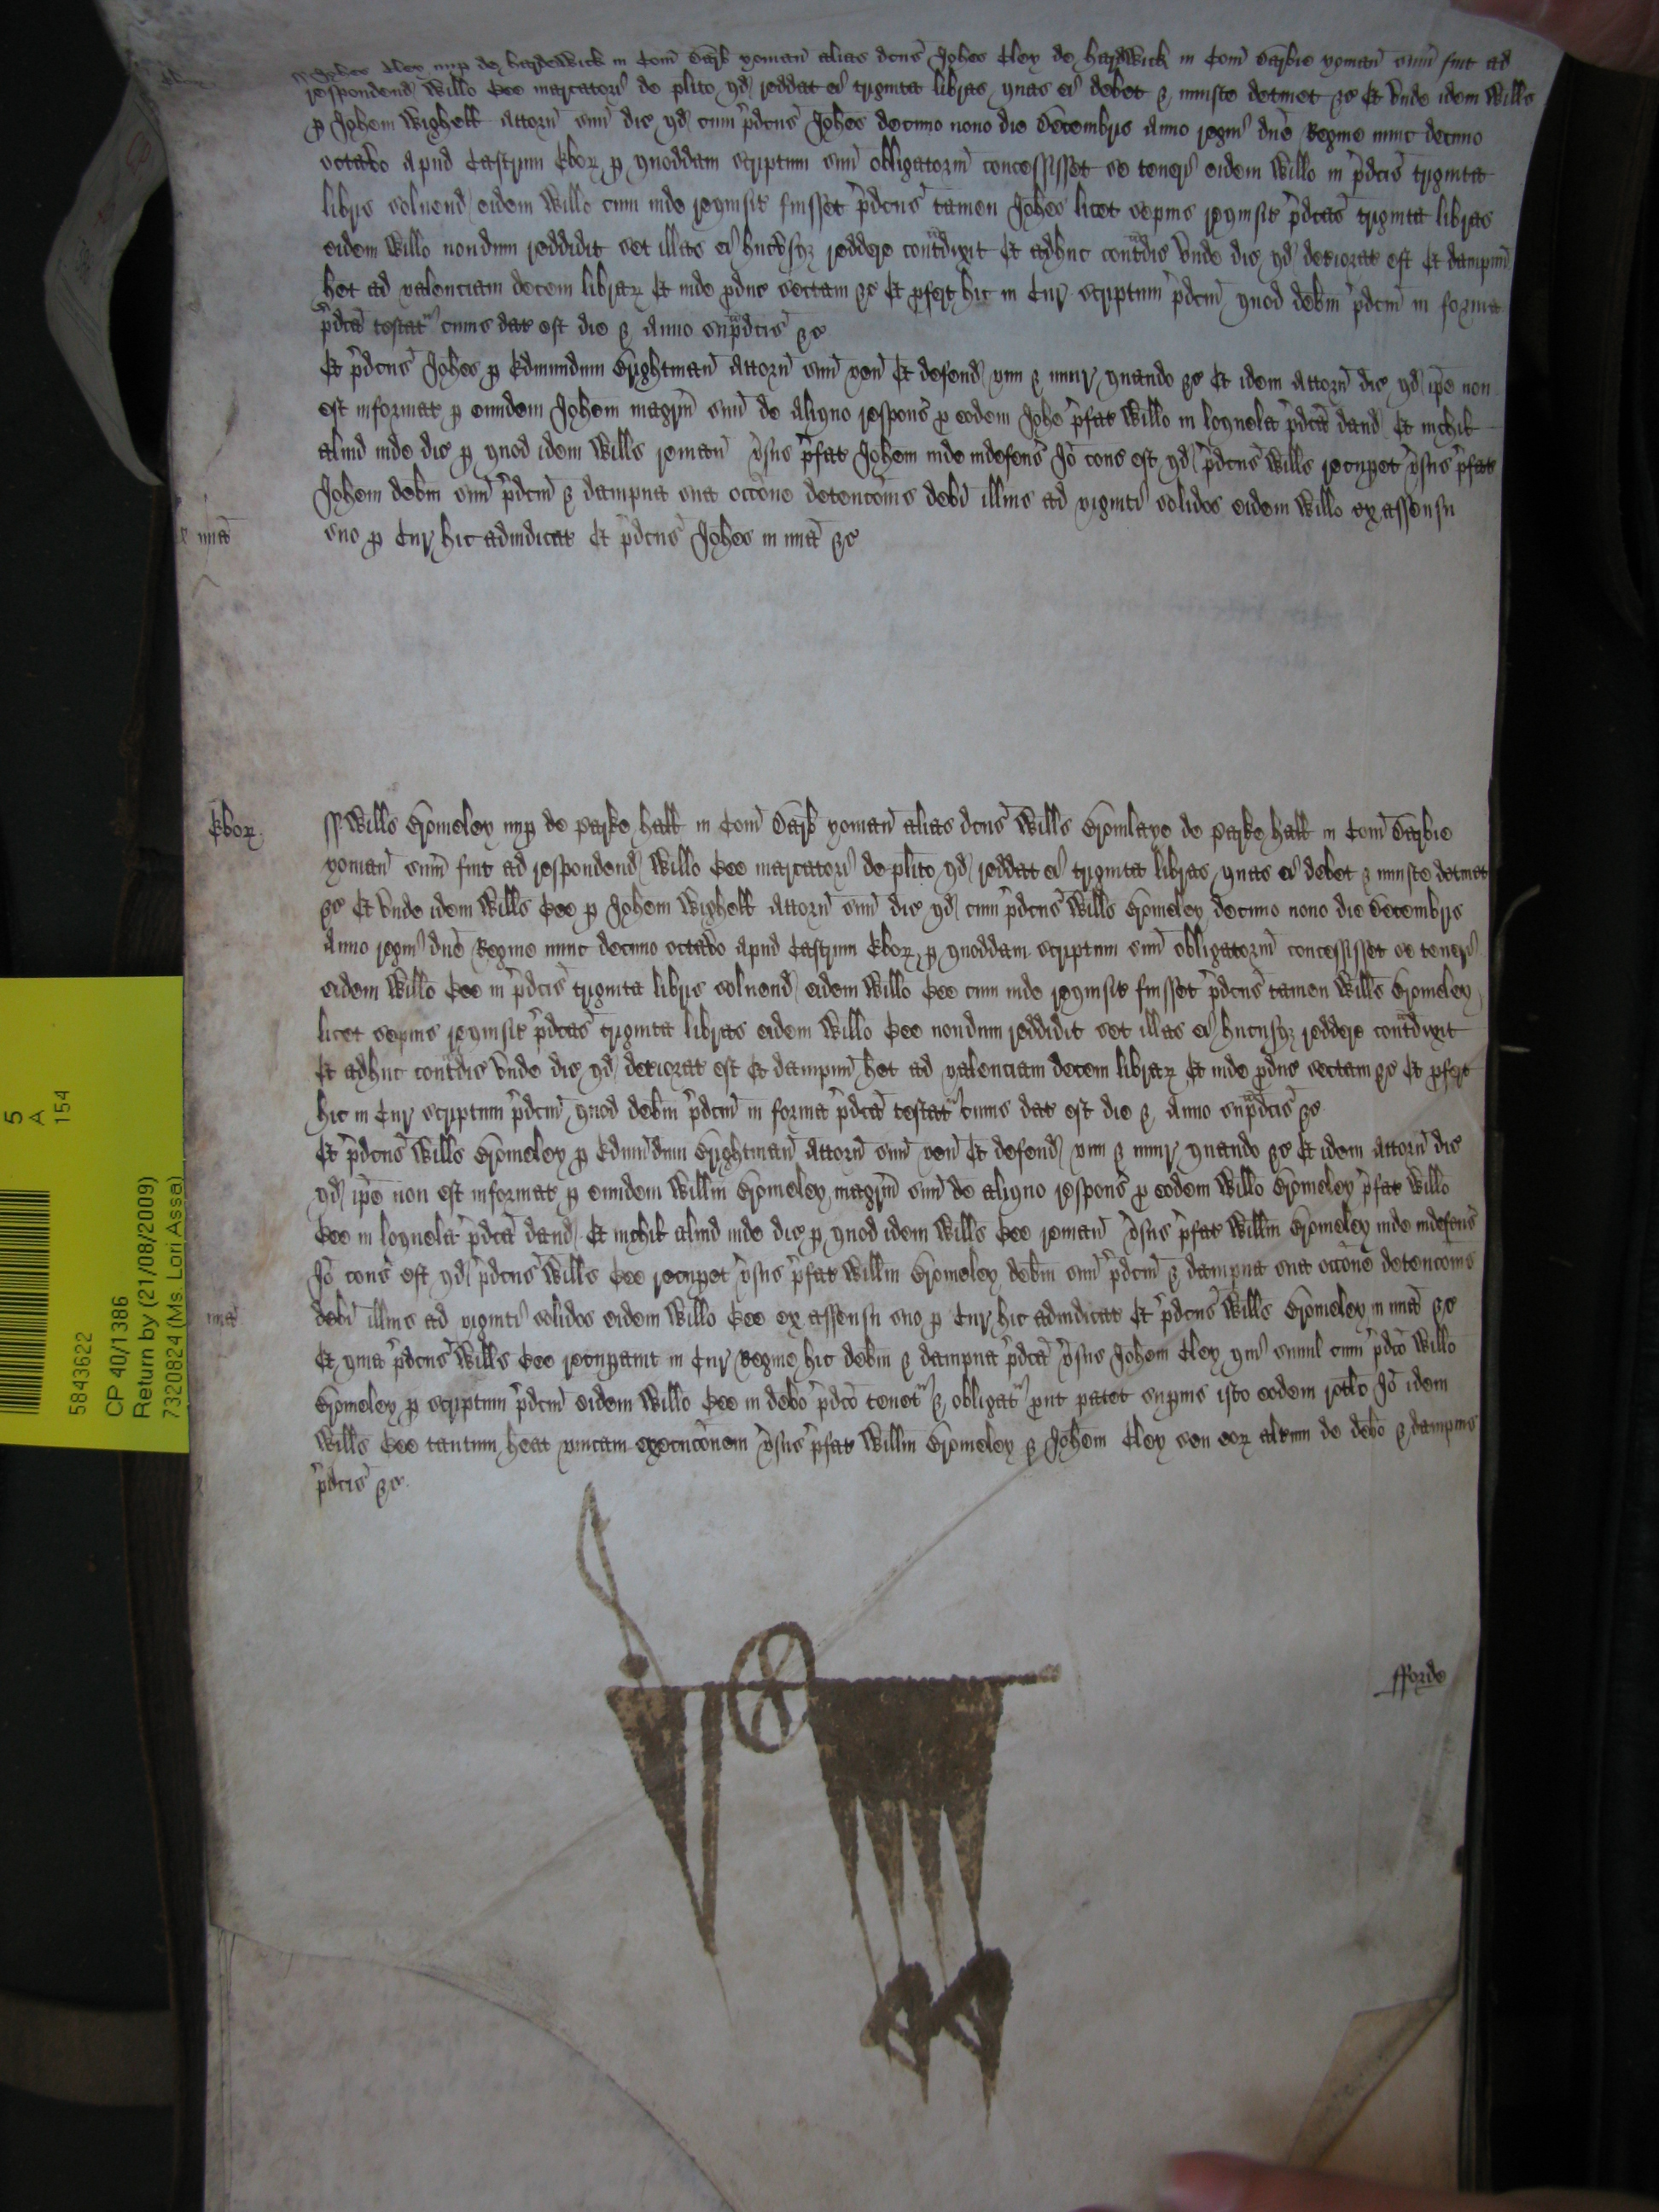 Ebor
ss Johes Cley nup de hardewick in Com̄ Darb yoman̄ alias dcus Johes Cley de hardwick in Com̄ Darbie yoman̄ sum̄ fuit ad
respondend Willo Bee marcatori de plito qd reddat ei triginta libras quas ei debet & iniuste detinet &c Et unde idem Wills
p Johem Wighell Attorn̄ suu dic qd cum p̄dcus Johes decimo nono die Decembris Anno regni dn̄e Regine nunc decimo
octavo apud Castrum Ebor p quoddam scriptum suu obligatoriu concessisset se teneri eidem Willo in p̄dcis triginta
libris solvend eidem Willo cum inde requisit fuisset p̄dcus tamen Johes licet sepius requisit p̄dcas triginta libras
eidem Willo nondum reddidit set illas ei hucusq reddere contᵃdixit Et adhuc contᵃdic unde dic qd deteriorat est Et dampnu
het ad valenciam decem librar Et inde pduc sectam &c Et pfert hic in Cur scriptum p̄dcm quod debm p̄dcm in forma
p̄dca testatʳ cuius dat est die & Anno sup̄dcis &c
Et p̄dcus Johes p Edmundum Brightman̄ Attorn̄ suu ven̄ Et defend vim & iniur quando &c Et idem Attorn̄ dic qd ip̄e non
est informat p eundem Johem magr̄m suu de aliquo respons p eodem Johe p̄fat Willo in loquela p̄dca dand Et nichil
aliud inde dic p quod idem Wills reman̄ v̄sus p̄fat Johem inde indefens Jo cons est qd p̄dcus Wills recupet v̄sus p̄fat
Johem debm suu p̄dcm & dampna sua occōne detencōnis debi illius ad viginti solidos eidem Willo ex assensu
mia
suo p Cur hic adiudicat Et p̄dcus Johes in mia &c
Ebor
ss Wills Bromeley nup de parke hall in Com̄ Darb yoman̄ alias dcus Wills Bromlaye de parke hall in Com̄ Darbie
yoman̄ sum̄ fuit ad respondend Willo Bee marcatori de plito qd reddat ei triginta libras quas ei debet & iniuste detinet
&c Et unde idem Wills Bee p Johem Wighell Attorn̄ suu dic qd cum p̄dcus Wills Bromeley decimo nono die Decembris
Anno regni dn̄e Regine nunc decimo octavo apud Castrum Ebor p quoddam scriptum suu obligatoriu concessisset se teneri
eidem Willo Bee in p̄dcis triginta libris solvend eidem Willo Bee cum inde requisit fuisset p̄dcus tamen Wills Bromeley
licet sepius requisit p̄dcas triginta libras eidem Willo Bee nondum reddidit set illas ei hucusq reddere contᵃdixit
Et adhuc contᵃdic unde dic qd deteriorat est Et dampnu het ad valenciam decem librar Et inde pduc sectam &c Et pfert
hic in Cur scriptum p̄dcm quod debm p̄dcm in forma p̄dca testatʳ cuius dat est die & Anno sup̄dcis &c
Et p̄dcus Wills Bromeley p Edmundum Brightman̄ Attorn̄ suu ven̄ Et defend vim & iniur quando &c Et idem Attorn̄ dic
qd ip̄e non est informat p eundem Willm Bromeley magr̄m suu de aliquo respons p eodem Willo Bromeley p̄fat Willo
Bee in loquela p̄dca dand Et nichil aliud inde dic p quod idem Wills Bee reman̄ v̄sus p̄fat Willm Bromeley inde indefens
Jo cons est qd p̄dcus Wills Bee recupet v̄sus p̄fat Willm Bromeley debm suu p̄dcm & dampna sua occōne detencōnis
mia
debi illius ad viginti solidos eidem Willo Bee ex assensu suo p Cur hic adiudicat Et p̄dcus Wills Bromeley in mia &c
Et quia p̄dcus Wills Bee recupavit in Cur Regine hic debm & dampna p̄dca v̄sus Johem Cley qui simul cum p̄dco Willo
Bromeley p scriptum p̄dcm eidem Willo Bee in debo p̄dco tenetʳ & obligatʳ put patet supius isto eodem rotlo Jo idem
Wills Bee tantum heat unicam execucōnem v̄sus p̄fat Willm Bromeley & Johem Cley seu eor alterum de debo & dampnis
p̄dcis &c
fforde
5
A
154
5843622
CP 40/1386
Return by (21/08/2009)
7320824 (Ms. Lori Assa)